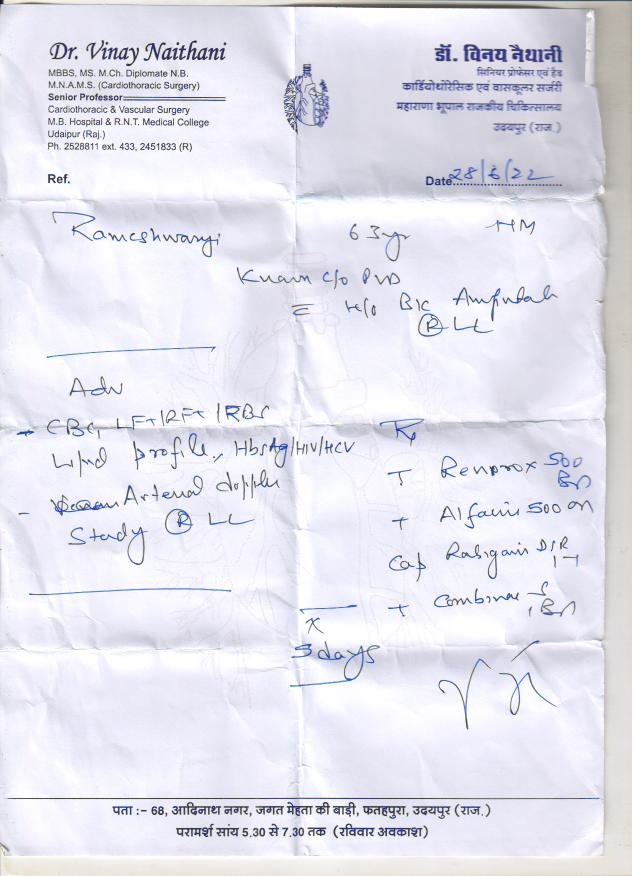 Dr. Vinay Naithani
MBBS, MS. M.Ch. Diplomate N.B.
M.N.A.M.S. (Cardiothoracic Surgery)
Senior Professor
Cardiothoracic & Vascular Surgery
M.B. Hospital & R.N.T. Medical College
Udaipur (Raj.)
Ph. 2528811 ext. 433, 2451833 (R)
डॉ. विनय नैथानी
सिनियर प्रोफेसर एवं हैड
कार्डियोथोरेसिक एवं वासकूलर सर्जरी
महाराणा भूपाल राजकीय चिकित्सालय
उदयपुर (राज.)
Ref.
Date 28/6/22
63yr
c/o PVD
H/o
Ⓡ LL
Adv
CBC, LFT/RFT/RBS
Lipid profile, HbsAg/HIV/HCV
- Arterial doppler
Study Ⓡ LL
Rx
T 500
+ 500
Cap DSR
+
x
5 days
पता :– 68, आदिनाथ नगर, जगत मेहता की बाड़ी, फतहपुरा, उदयपुर (राज.)
परामर्श सांय 5.30 से 7.30 तक (रविवार अवकाश)